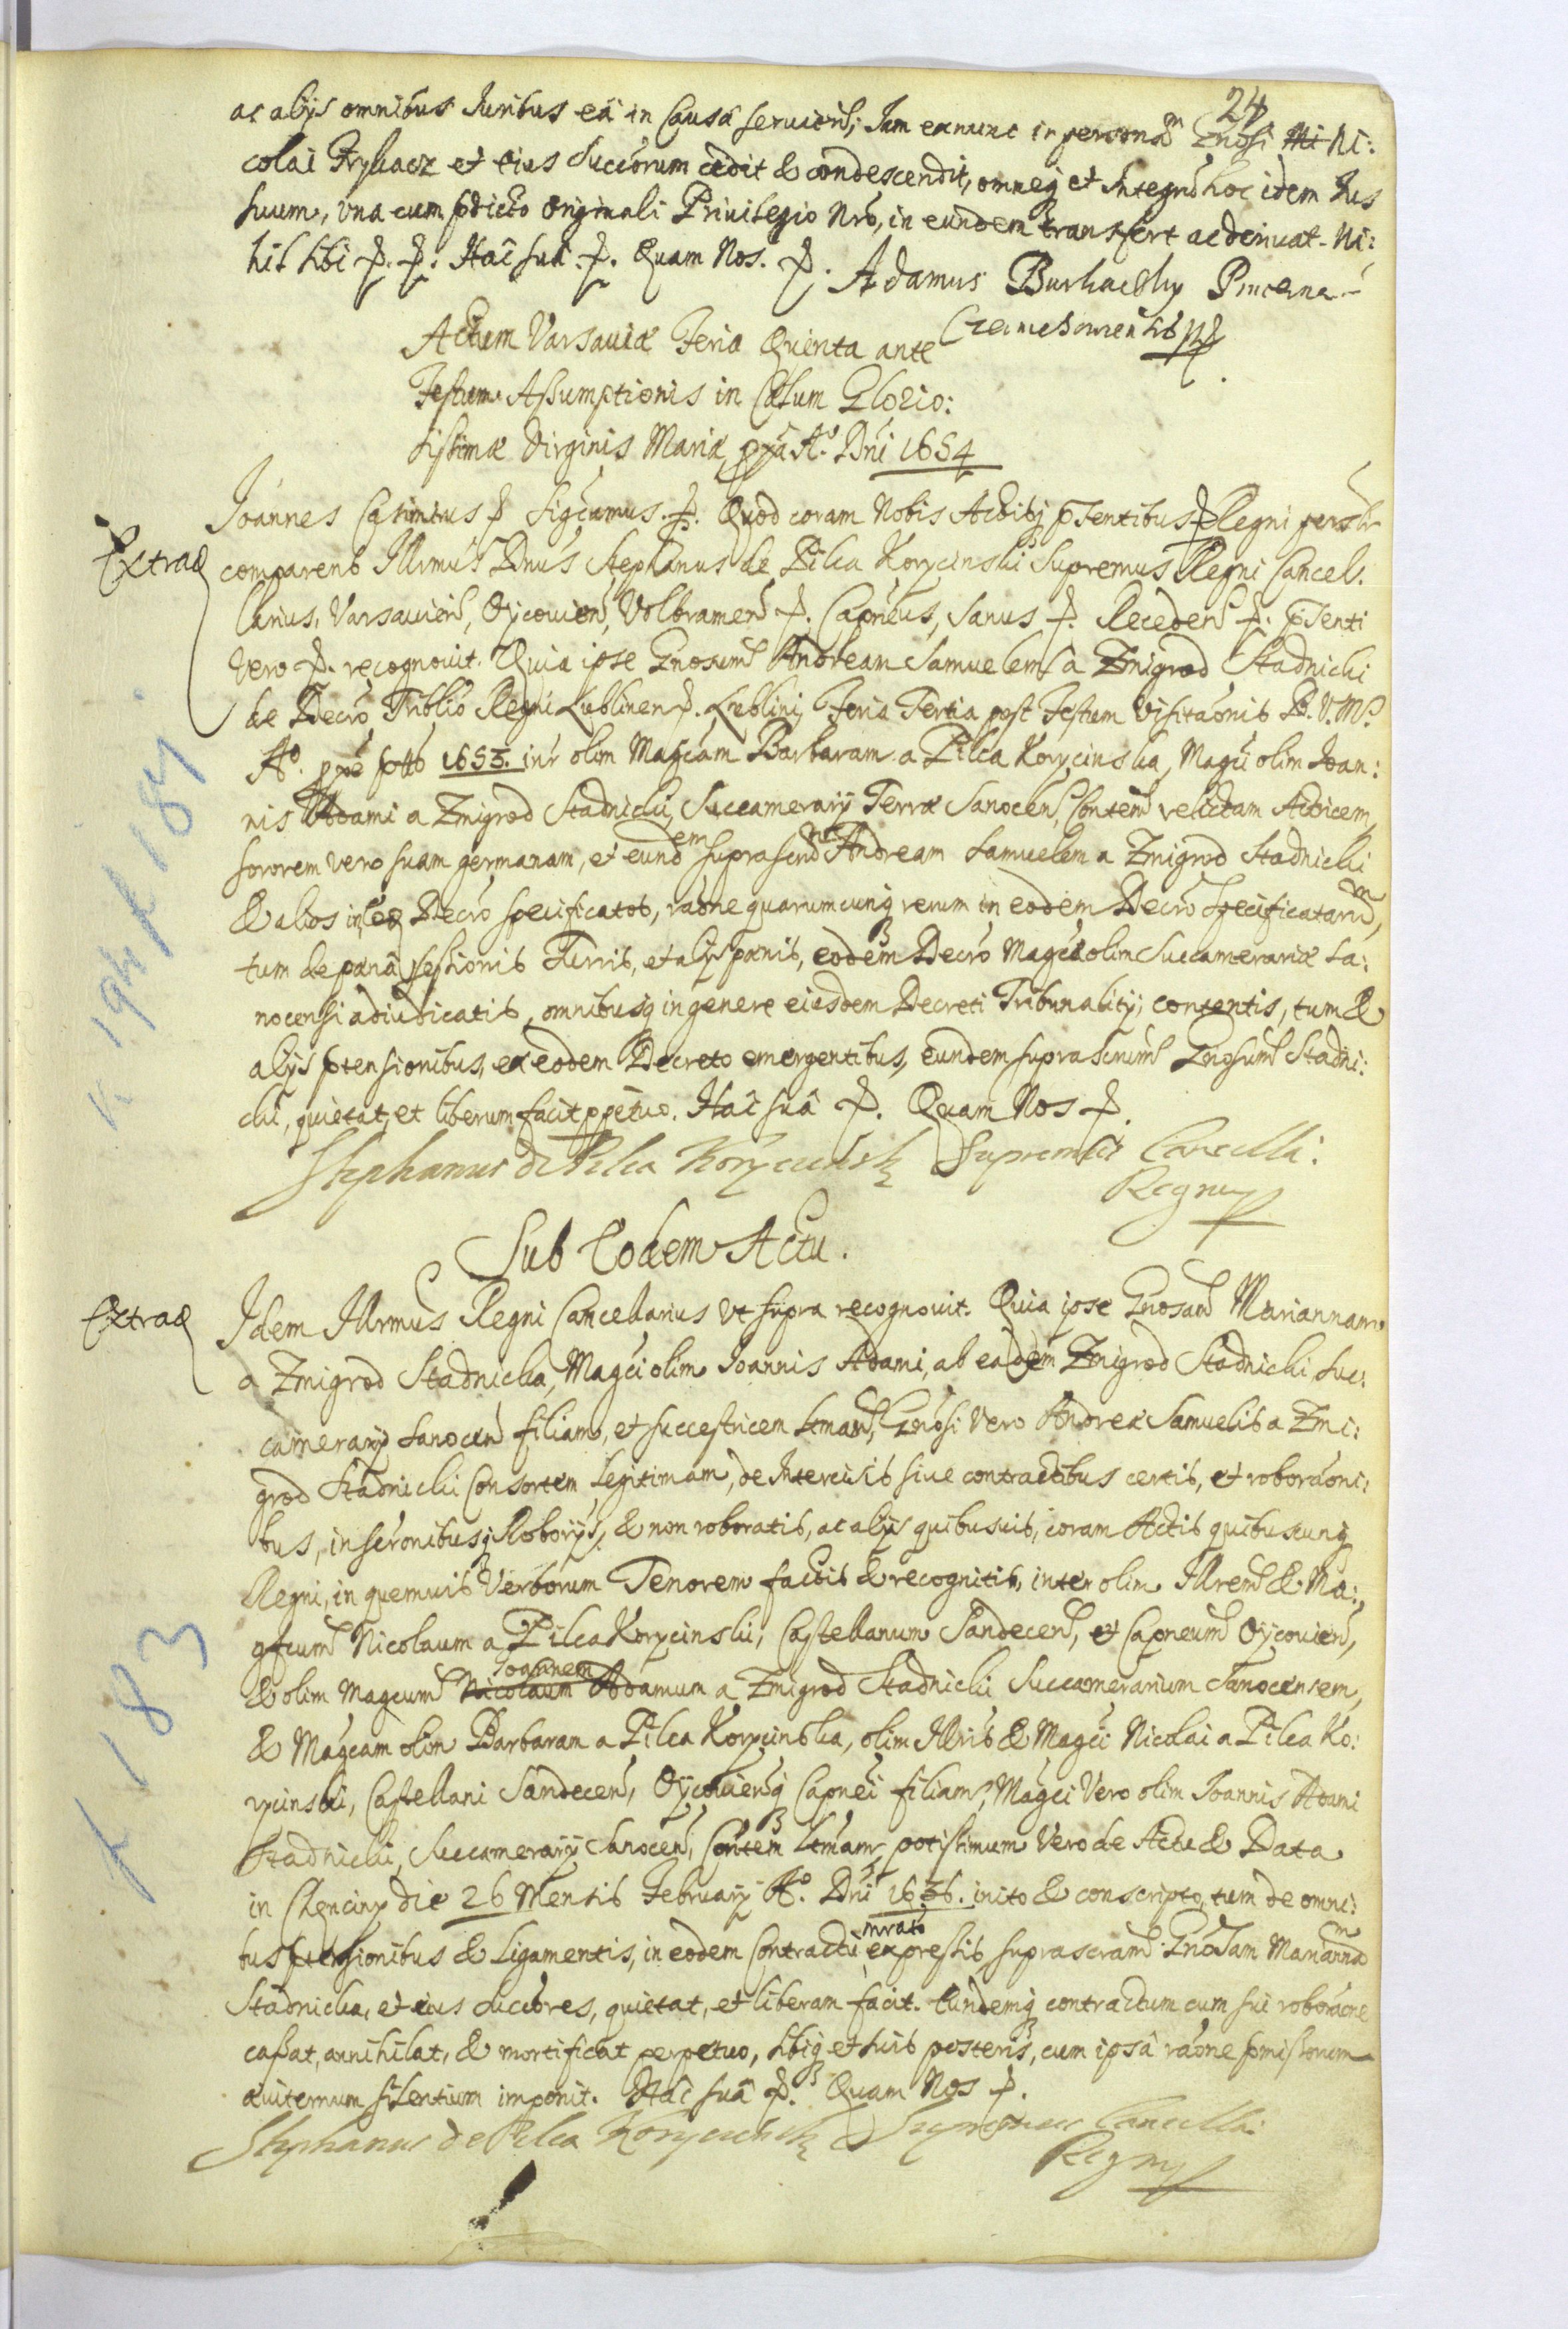 24
ac alijs omnibus Juribus eâ in Causâ seruien, Jam exnunc in personam Gnosi Mi Ni:
colai Hrybacz et eius Succorum cedit & condescendit, omneq et Integrũ hoc idem Jus
suum, vna cum pdicto Originali Priuilegio Nro, in eundem transfert ac deriuat. Ni:
hil sibi p. p. Hac sua p. Quam Nos. p. Adamus Burkacky Pincerna
Czerniechouiensis mp
Actum Varsauiæ Feria Quinta ante
Festum Assumptionis in Cælum Glorio:
sissimæ Virginis Mariæ pxa Aº. Dni 1654
Extrad
Joannes Casimirus p Sigcamus. p. Quod coram Nobis Actibq pñsentibus p Regni persalr
comparens Illrmus Dnus Stephanus de Pilca Korycinski Supremus Regni Cancel.
larius, Varsauien, Oycouien, Volbramen p. Capneus, Sanus p. Receden p. pñsenti
vero p. recognouit. Quia ipse Gnosum Andream Samuelem â Zmigrod Stadnicki
de Decro Triblio Regni Lublinen p. Lublini, Feria Tertia post Festum Visitãonis B.V.M.
Aº. pxe ptto 1653. inr olim Magcam Barbaram a Pilca Korycinska, Magci olim Joan:
nis Adami a Zmigrod Stadnicki, Succamerarij Terræ Sanocen, Contem relictam Actricem
sororem vero suam germanam, et eundem suprascrm Andream Samuelem a Zmigrod Stadnicki
& alios in eo Decro specificatos, rãone quarumcunq rerum in eodem Decro Specificatarum,
tum de pœnâ sessionis Turris, et alijs pœnis, eodem Decro Magcæ olim Succamerariæ Sa:
nocensi adiudicatis, omnibusq in genere eiusdem Decreti Tribunalitij contentis, tum &
alijs ptensionibus, ex eodem Decreto emergentibus, eundem suprascrium Gnosum Stadni:
cki, quietat, et liberum facit ppetuo. Hac suâ p. Quam Nos p.
Stephanus de Pilca Korycinsky Supremus Cancella:
Regni mp
Sub Eodem Actu.
Extrad
Idem Illrmus Regni Cancellarius vt supra recognouit. Quia ipse Gnosam Mariannam
a Zmigrod Stadnicka, Magci olim Joannis Adami, ab eadem Zmigrod Stadnicki Suc:
camerarij Sanocen filiam, et successricem Ltmam, Gnosi vero Andreæ Samuelis a Zmi:
grod Stadnicki Consortem Legitimam, de Intercisis siue contractibus certis, et roborãoni:
bus, inscrõnibusq Roborijs, & non roboratis, ac alijs quibusuis, coram Actis quibuscunq
Regni, in quemuis Verborum Tenorem factis & recognitis, inter olim Illrem & Ma:
gfcum Nicolaum a Pilca Korycinski, Castellanum Sandecen, et Capneum Oycouien,
& olim Magcum Nicolaum Joannem Adamum a Zmigrod Stadnicki Succamerarium Sanocensem,
& Magcam olim Barbaram a Pilca Korycinska, olim Illris & Magci Nicolai a Pilca Ko:
rycinski, Castellani Sandecen, Oycouienq Capnei filiam, Magci Vero olim Joannis Adami
Stadnicki, Succamerarij Sanocen, Contem Ltmam, potissimum Vero de Actu & Data
in Chęciny die 26 Mensis February Aº. Dni 1636. inito & conscripto, tum de omni:
bus ptensionibus & Ligamentis, in eodem Contractu mrato expressis, suprascram Gnosam Mariannam
Stadnicka, et eius Succores, quietat, et liberam facit. Eundemq contractum cum sui roborãone
cassat, annihilat, & mortificat perpetuo, sibiq et suis posteris, cum ipsâ rãone pmissorum
æuiternum silentium imponit. Hac suâ p. Quam Nos p.
Stephanus de Pilca Korycinsky Supremus Cancella:
Regni mp
K 194 f 189
f 183